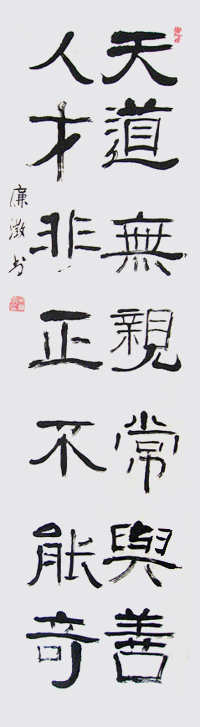 天道無親常與善
人才非正不能奇
廉澂书